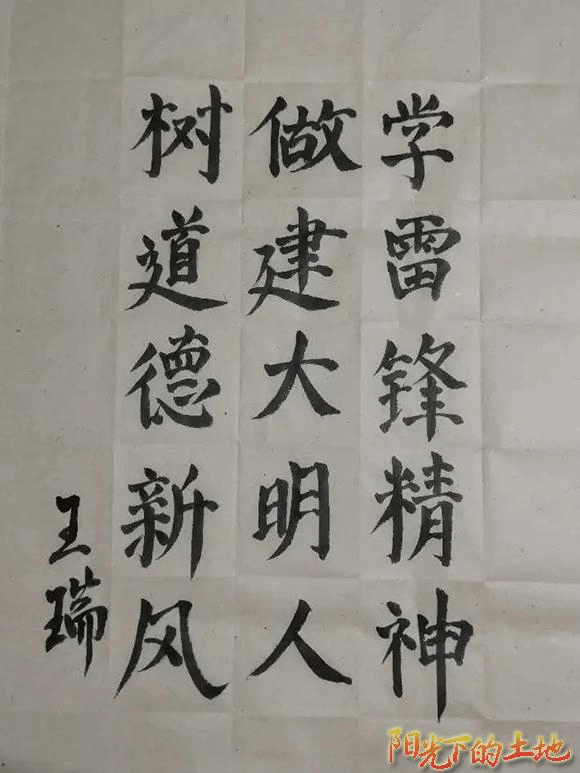 学雷锋精神
做建大明人
树道德新风
王瑞
阳光下的土地